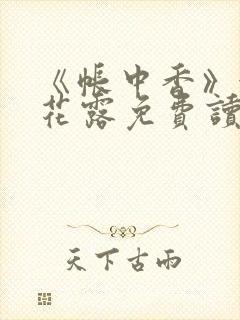 《帳中香》
花露免費讀
天下古雨